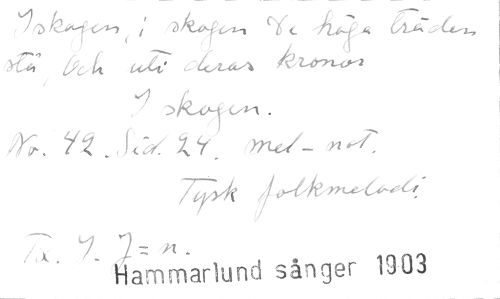 I skogen, i skogen de höga träden
stå, och uti deras kronor
I skogen.
No. 42. Sid. 24. mel-not.
Tysk folkmelodi.
Tx. J. J=n.
Hammarlund sånger 1903